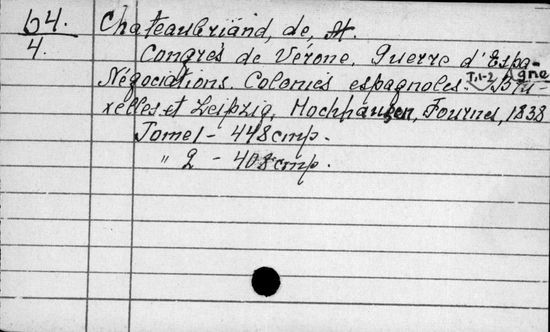 64.
4.
Chateaubriand, de, A.
Congrès de Vérone. Guerre d'Espa-
Négociations. Colonies espagnoles. T.1-2 gne
Bru-
xelles et Leipzig, Hochhausen, Fournes, 1838
Tome 1 - 448 стр.
" 2 - 408 стр.